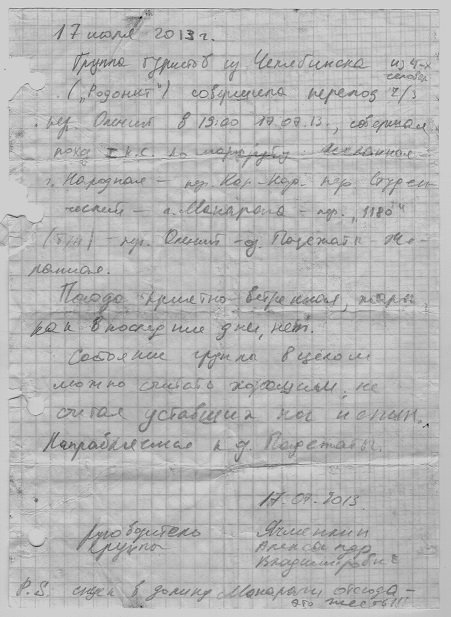 17 июля 2013 г.
Группа туристов из Челябинска из 4-х
человек
("Родонит") совершила переход ч/з
пер. Олений в 19:00 17.07.13., совершая
поход I к.с. по маршруту: Желанная
г. Народная – пер. Кар-Кар. пер. Студен-
ческий – г. Манарага – пер. "1180"
(б/н) – пер. Олений – д. Подежаты – Же-
ланная.
Погода приятно ветренная, жары,
как в последние дни, нет.
Состояние группы в целом
можно считать хорошим, не
считая уставших ног и спин.
Направляемся к д. Подежаты.
17.07.2013
Руководитель
группы
Александр
Владимирович
P.S. спуск в долину Манараги отсюда –
это жесть!!!